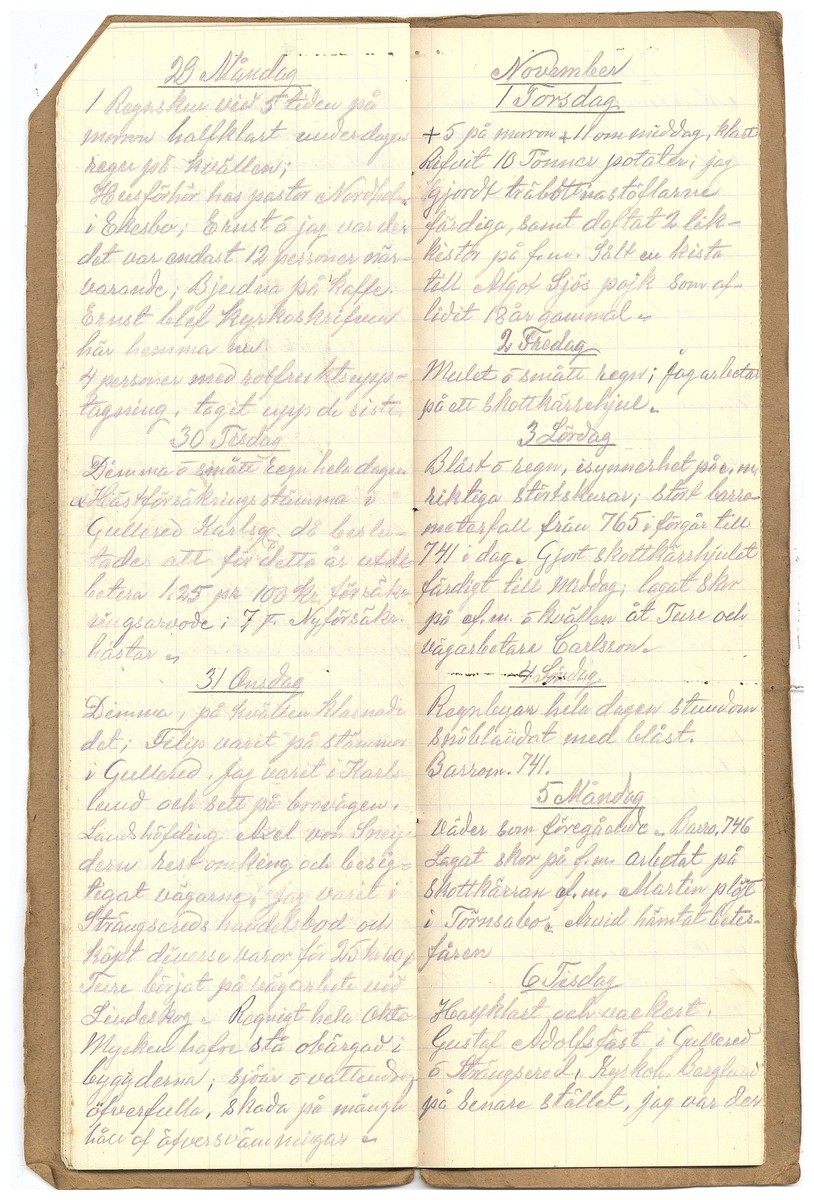 29 Måndag
1 Regnskur vid 5 tiden på
morron halfklart under dagen
regn på kvällen;
Husförhör hos pastor
i Ekesbo; Ernst ö jag var der
det var endast 12 personer när-
varande; Bjudna på kaffe.
Ernst blef kyrkoskrifven
här hemma nu
4 personer med rotfruktsupp-
tagning, taget upp de sista
30 Tisdag
Dimma ö smått regn hela dagen
Hästförsäkringsstämma i
Gullered Karlsg. då beslu-
tades att för detta år utde-
betera 1.25 pr 100 kr försäk-
ringsarvode; 7 st Nyförsäkr.
hästar
31 Onsdag
Dimma, på kvällen klarnade
det; Filip varit på stämman
i Gullered. Jag varit i Karls-
lund och sett på brovägen.
Landshöfding Axel von Snei-
dern rest omkring och besig-
tigat vägarne, jag varit i
Strängsereds handelsbod och
köpt diverse varor för 25 kr
Ture börjat på vägarbete vid
Lindeskog. Regnigt hela Okto
Mycken hafre stå obärgad i
bygderna; sjöar ö vattendrag
öfverfulla, skada på många
håll af öfversvämningar
November
1 Torsdag
+5 på morron +11 om middag, klart
Refvit 10 Tonner potater; jag
gjordt träbottnastöflarne
färdiga, samt doftat 2 lik-
kistor på f.m. Sålt en kista
till Algot Sjös pojk som af-
lidit 13 år gammal
2 Fredag
Mulet ö smått regn; Jag arbetat
på ett skottkärrehjul
3 Lördag
Blåst ö regn, isynnerhet på e.m.
riktiga störtskurar; stort barro-
meterfall från 765 i förgår till
741 i dag. Gjort skottkärrshjulet
färdigt till middag; lagat skor
på ef.m. ö kvällen åt Ture och
vägarbetare Carlsson
4 Söndag
Regnbyar hela dagen stundom
snöblandat med blåst.
Barrom. 741.
5 Måndag
Väder som föregående Barro. 746
Lagat skor på f.m. arbetat på
skottkärran ef.m. Martin plöjt
i Törnsabo Arvid hämtat betes-
fåren
6 Tisdag
Halfklart och vackert.
Gustaf Adolfsfäst i Gullered
ö Strängsere 2, Kyrkoh. Berglund
på senare stället, jag var der